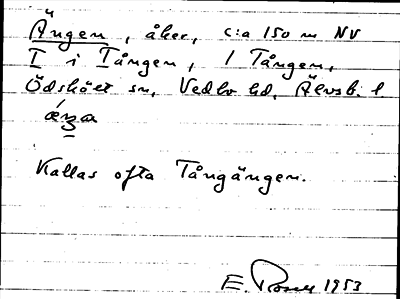 Ängen, åker, c:a 150 m NV
I i Tången, 1 Tången,
Ödskölt sn, Vedbo hd, Älvsb. l.
äŋa
Kallas ofta Tångängen.
E. 1953